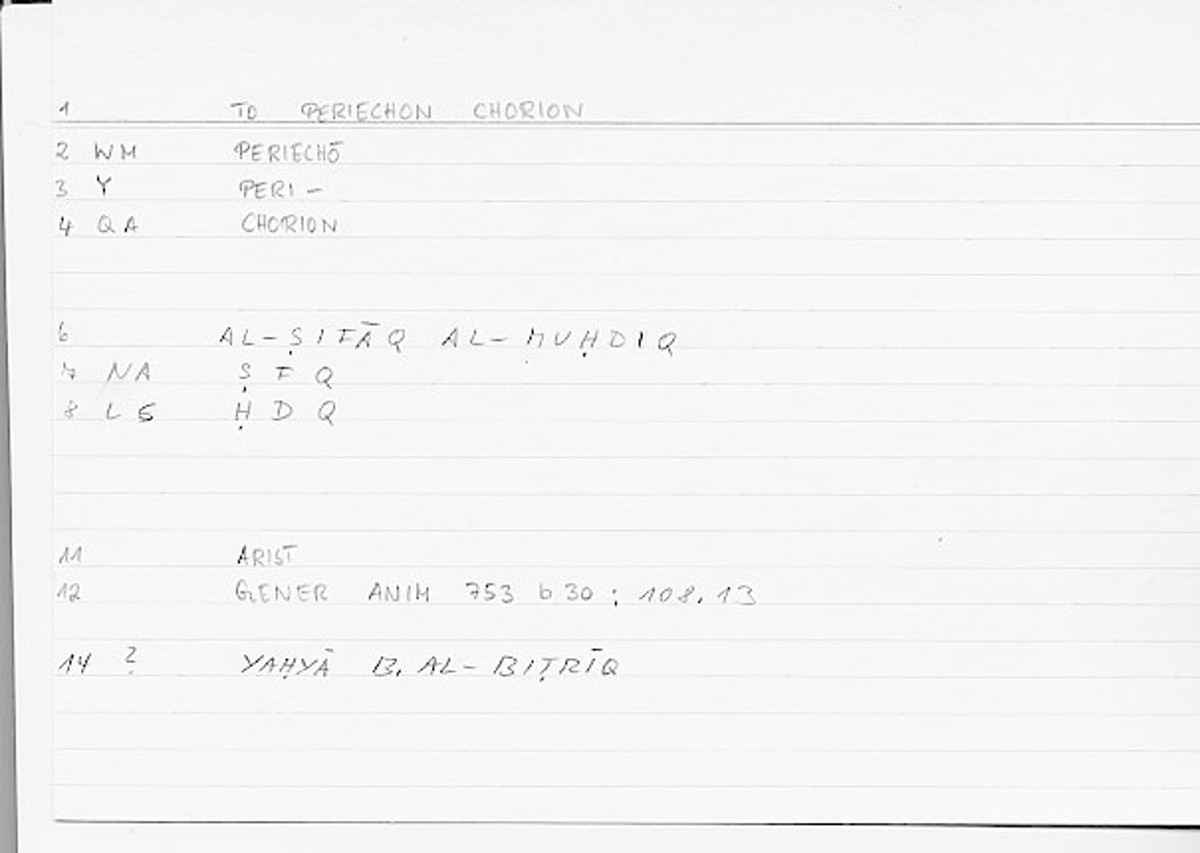 1 TO PERIECHON CHORION
2 WM PERIECHŌ
3 Y PERI -
4 QA CHORION
6 AL-ṢIFĀQ AL-MUḤDIQ
7 NA Ṣ F Q
8 L5 Ḥ D Q
11 ARIST
12 GENER ANIM 753 b 30 ; 108.13
14 ? YAḤYĀ B. AL-BIṬRĪQ